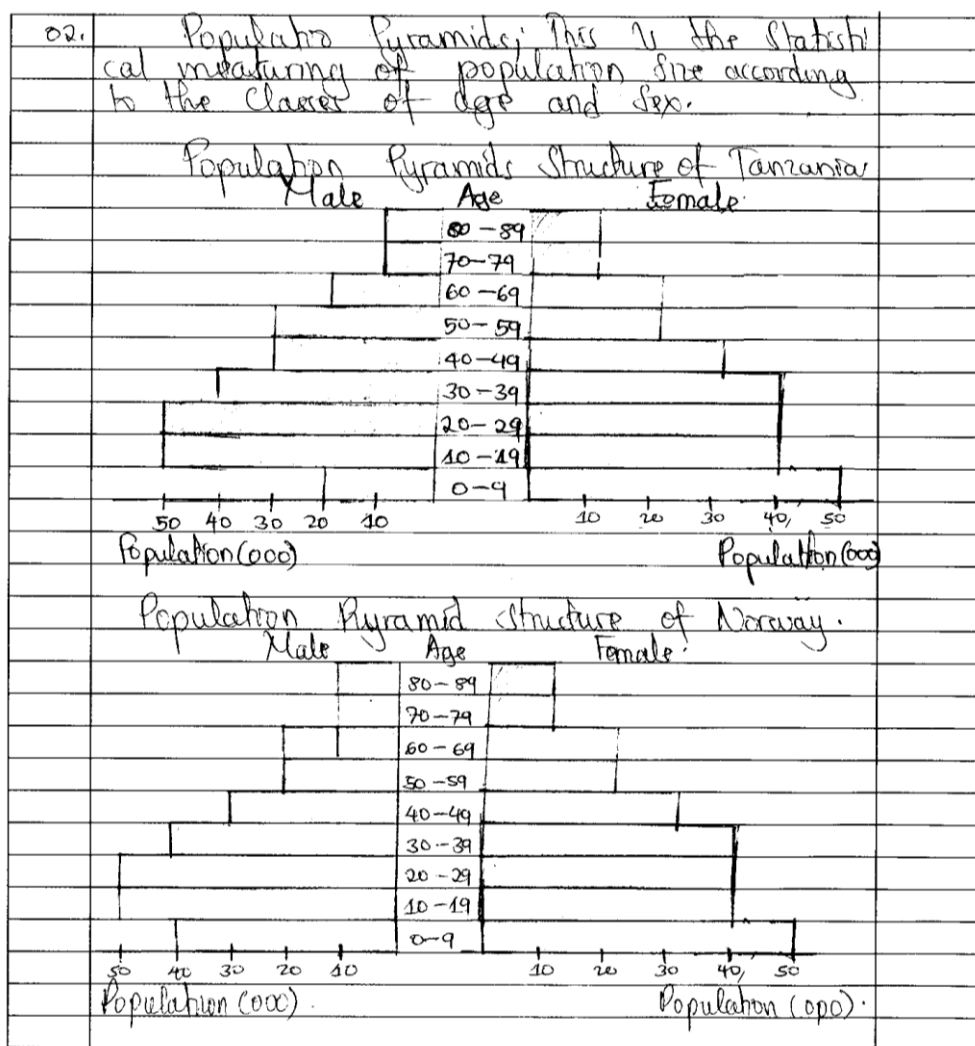 02. Populatio Pyramids; This is the Statisti
cal measuring of population size according
to the classes of age and sex.
Population Pyramids Structure of Tanzania
Male Age Female.
80-89
70-79
60-69
50-59
40-49
30-39
20-29
10-19
0-9
50 40 30 20 10 10 20 30 40, 50
Population (000) Population (000)
Population Pyramid structure of Norway.
Male Age Female.
80-89
70-79
60-69
50-59
40-49
30-39
20-29
10-19
0-9
50 40 30 20 10 10 20 30 40, 50
Population (000). Population (000).